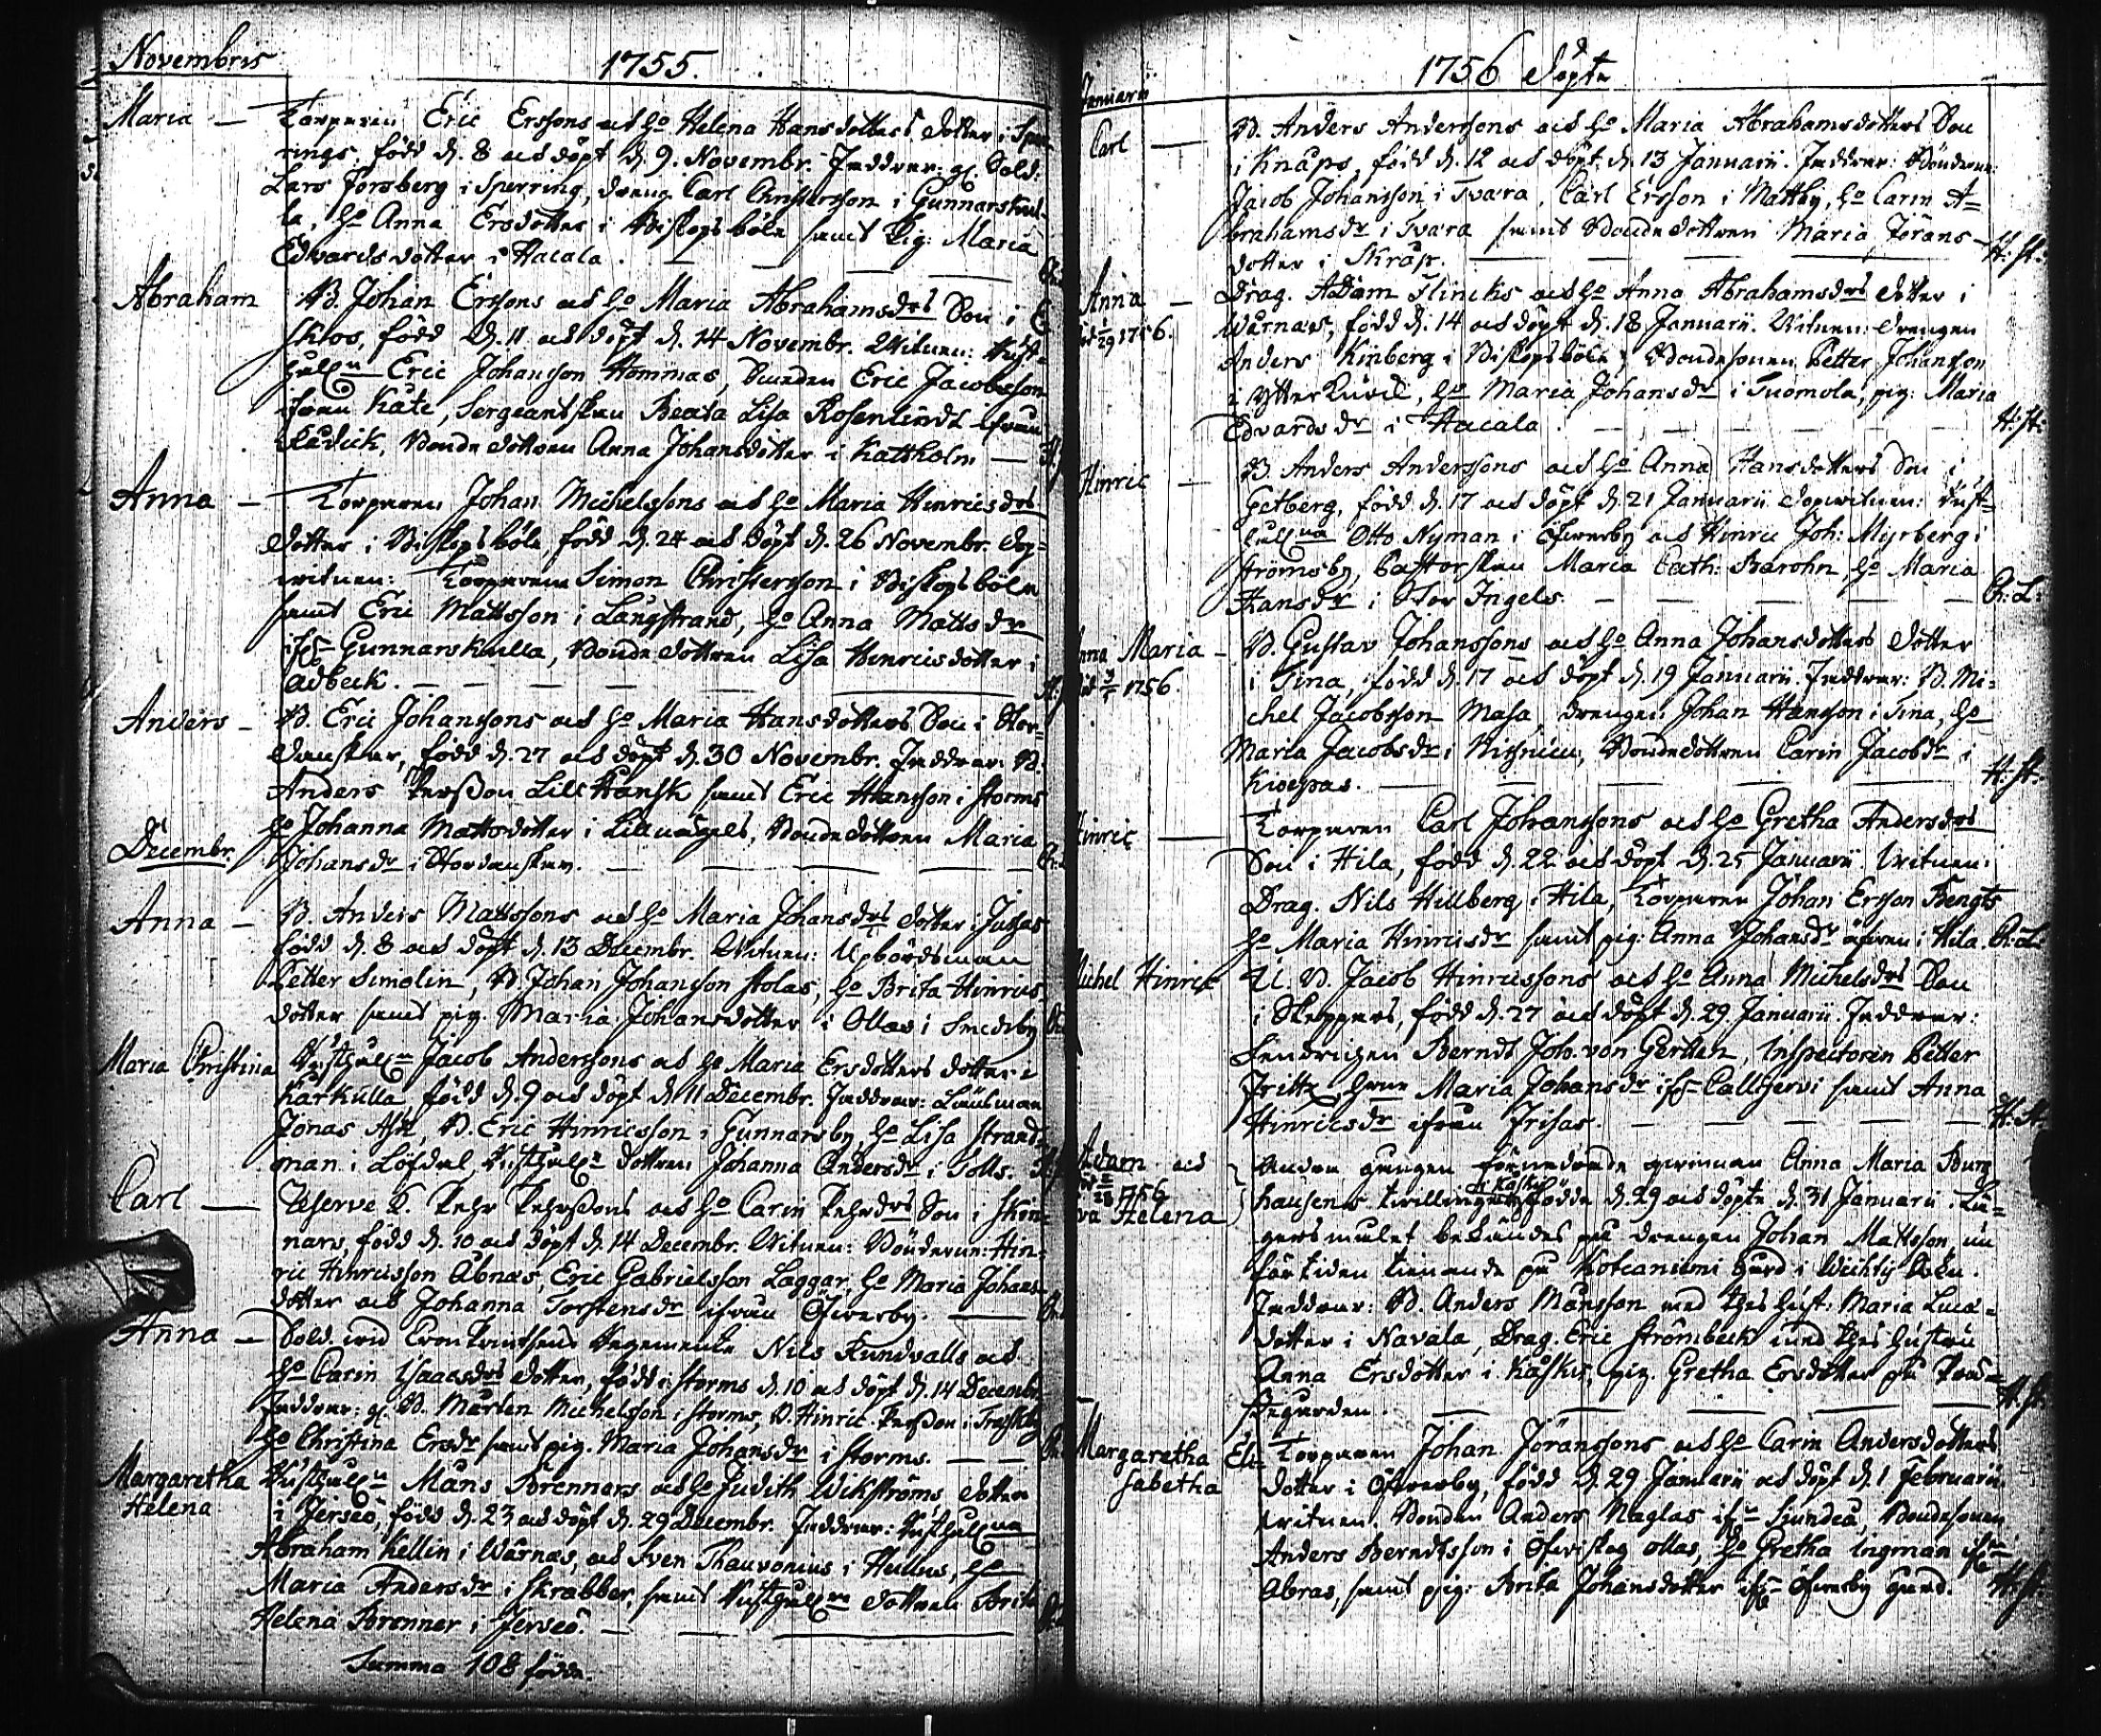 Novembris
1755.
Maria — Torparen Eric Ersons och H:o Helena Hansdotters dotter i Sper-
rings, född d. 8 och döpt d. 9. Novembr. Faddrar: gl. Sold:
Lars Forsberg i Sperring, dreng Carl Christersson i Gunnarskul-
la, H:o Anna Ersdotter i Biskopsböle samt Pig: Maria
Edvardsdotter i Hacala.
Abraham B. Johan Ersons och H:o Maria Abrahamsdrs Son i
sklos, född d. 11 och döpt d. 14 Novembr. Witnen: Rust-
Eric Johansson Hommas, Bonden Eric Jacobsson
ifrån Käte, Sergeantskan Beata Lisa Rosenlindt ifrån
Bonde dottren Anna Johansdotter i Kattholm —
Anna — Torparen Johan Michelssons och H:o Maria Hinricsdrs
dotter i Biskopsböle född d. 24 och döpt d. 26 Novembr. Dop-
witnen: Torparena Simon Christersson i Biskopsböle
samt Eric Mattsson i Långstrand, H:o Anna Mattsdr
Gunnarskulla, Bonde dottren Lisa Hinricsdotter i
adbeck.
Anders — B. Eric Johanssons och H:o Maria Hansdotters Son i Stor-
dansker, född d. 27 och döpt d. 30 Novembr. Faddrar: B.
Anders Persson Lill Kansk samt Eric Hansson i Storms
H:o Johanna Mattsdotter i Lillnägels, Bonde dottren Maria
Johansdr i Stordansker.
Decembr.
Anna — B. Anders Mattssons och H:o Maria Johansdrs dotter i Jutjas
född d. 8 och döpt d. 13 Decembr. Witnen: Upbördsman
Petter Simolin, B. Johan Johansson Stolas, H:o Brita Hinrics
dotter samt pig. Maria Johansdotter i Ollas i Smedsby
Maria Christina Jacob Anderssons och H:o Maria Ersdotters dotter i
Kärkulla född d. 9 och döpt d. 11 Decembr. Faddrar: Länsman
Jonas Ask, B. Eric Hinricsson i Gunnarsby, H:o Lisa Strand-
man i Löfdal, dottren Johanna Andersdr i Tolls.
Carl — Reserve K. Pehr Pehrssons och H:o Carin Pehrdrs Son i Skin-
nars, född d. 10 och döpt d. 14 Decembr. Witnen: Bönderne: Hin-
ric Hinricsson Åbnäs, Eric Gabrielsson Laggar, H:o Maria Johans-
dotter och Johanna Torstensdr ifrån Öfverby.
Anna — Sold. wid Regemente Nils Rundvalls och
H:o Carin Isaacsdrs dotter, född i Storms d. 10 och döpt d. 14 Decembr.
Faddrar: gl. B. Mårten Michelsson i Storms, B. Hinric Persson i Träskby
H:o Christina Ersdr samt pig. Maria Johansdr i Storms.
Margaretha
Helena
Måns Brenners och H:o Judith Wikströms dotter
i Jerseö, född d. 23 och döpt d. 29 Decembr. Faddrar:
Abraham Kellin i Wärnäs, och Sven Thauvonius i Hullus, H:o
Maria Andersdr i Skrabber, samt dottren Brita
Helena Brenner i Jerseö.
Summa 108 födde.
1756 Döpte
Januarii
Carl — B. Anders Anderssons och H:o Maria Abrahamsdotters Son
i Knaps, född d. 12 och döpt d. 13 Januarii. Faddrar: Bönderne:
Jacob Johansson i Tvara, Carl Ersson i Mattby, H:o Carin A-
brahamsdr i Tvara samt Bondedottren Maria Jörans-
dotter i Skräp. H: St:
Anna — Drag. Adam Flincks och H:o Anna Abrahamsdrs dotter i
1756.
Wärnäs, född d. 14 och döpt d. 18 Januarii. Witnen: Drengen
Anders Kinberg i Biskopsböle, Bondesonen Petter Johansson
i Ytter H:o Maria Johansdr i Tuomola, pig: Maria
Edvardsdr i Hacala. H: St:
Hinric — B. Anders Anderssons och H:o Anna Hansdotters Son i
Getberg, född d. 17 och döpt d. 21 Januarii Dopwitnen: Rust-
Otto Nyman i Öfverby och Hinric Joh: Myrberg i
Strömsby, Pastorskan Maria Cath: Barohn, H:o Maria
Hansdr i Stor Ingels.
nna Maria — B. Gustav Johanssons och H:o Anna Johansdotters dotter
1756.
i Tina, född d. 17 och döpt d. 19 Januarii. Faddrar: B. Mi-
chel Jacobsson Masa, drengen Johan Hansson i Tina, H:o
Maria Jacobsdr i Bondedottren Carin Jacobsdr i
Kioepas. H: St:
Hinric — Torparen Carl Johanssons och H:o Gretha Andersdrs
Son i Hila, född d. 22 och döpt d. 25 Januarii. Witnen:
Drag. Nils Hillberg i Hila, Torparen Johan Ersson Bengts
H:o Maria Hinricsdr samt pig: Anna Johansdr äfven i Hila.
Michel Hinric U. B. Jacob Hinricssons och H:o Anna Michelsdrs Son
i Skeppars, född d. 27 och döpt d. 29. Januarii. Faddrar:
Fendrichen Berndt Joh. von Gertten, Inspectoren Petter
Fritz, Maria Johansdr Calljervi samt Anna
Hinricsdr ifrån Frisas. H: St
Adam och
1756
va Helena
Andra gången förnedrade qvinnan Anna Maria Burg
hausens twillingar i Kaskis födde d. 29 och döpte d. 31 Januarii. Lä-
gersmålet bekändes på drengen Johan Mattsson nu
för tiden tienande på Kotcaniemi Gård i Wichtis Sokn.
Faddrar: B. Anders Månsson med thes Hust: Maria Luca-
dotter i Navala, Drag. Eric Strömbeck med thes Hustru
Anna Ersdotter i Kaskis, pig. Gretha Ersdotter på
H: St:
Margaretha Eli-
sabetha
Torparen Johan Jöranssons och H:o Carin Andersdotters
dotter i Öfverby, född d. 29 Januarii och döpt d. 1 Februarii
Witnen. Bonden Anders Naglas Siundeå, Bondesonen
Anders Berndtsson i Öfverskog ollas, H:o Gretha Ingman
Abras, samt pig: Brita Johansdotter Öfverby Gård. H: St: